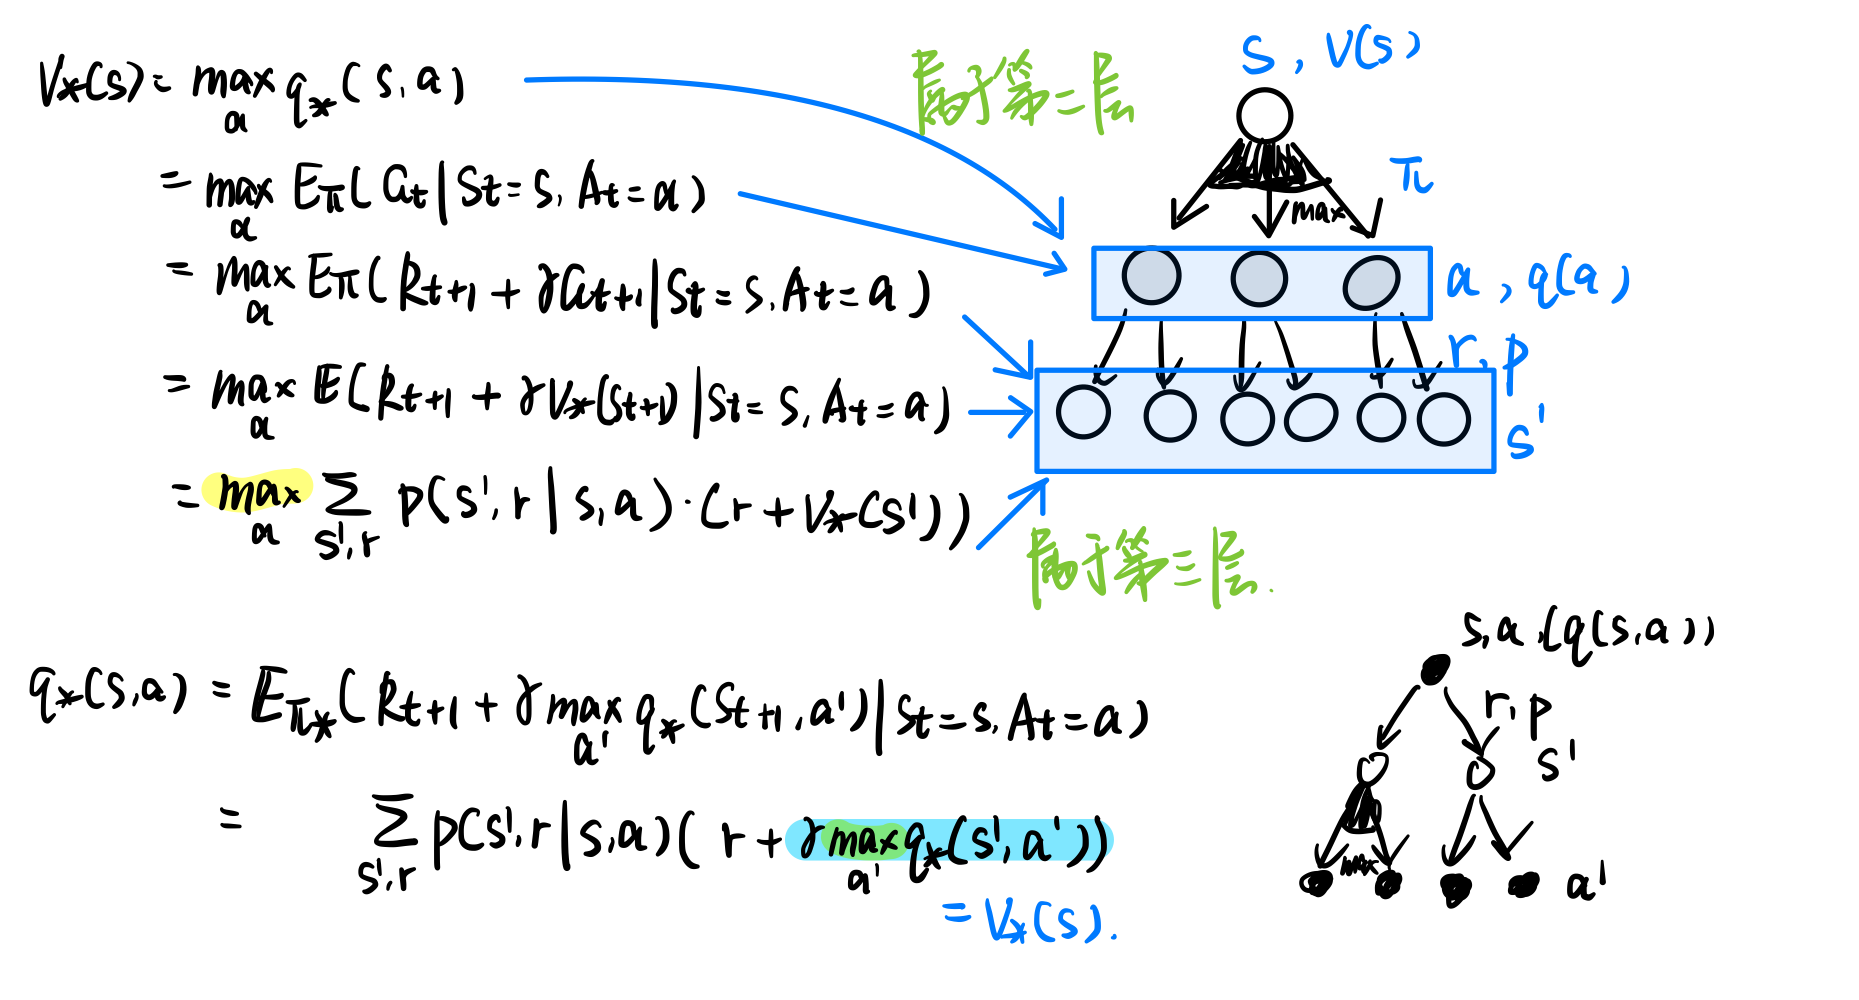 V*(s) = max_a q*(s,a)
= max_a Eπ(Gt | St=s, At=a)
= max_a Eπ(Rt+1 + γGt+1 | St=s, At=a)
= max_a E(Rt+1 + γV*(St+1) | St=s, At=a)
= max_a Σ_s',r p(s',r | s,a)·(r + V*(s'))
属于第二层
s, v(s)
π
max
a, q(a)
r, p
s'
属于第三层.
q*(s,a) = Eπ*(Rt+1 + γ max_a' q*(St+1, a') | St=s, At=a)
= Σ_s',r p(s',r | s,a)( r + γ max_a' q*(s',a'))
= V*(s).
s,a,(q(s,a))
r, p
s'
max
a'